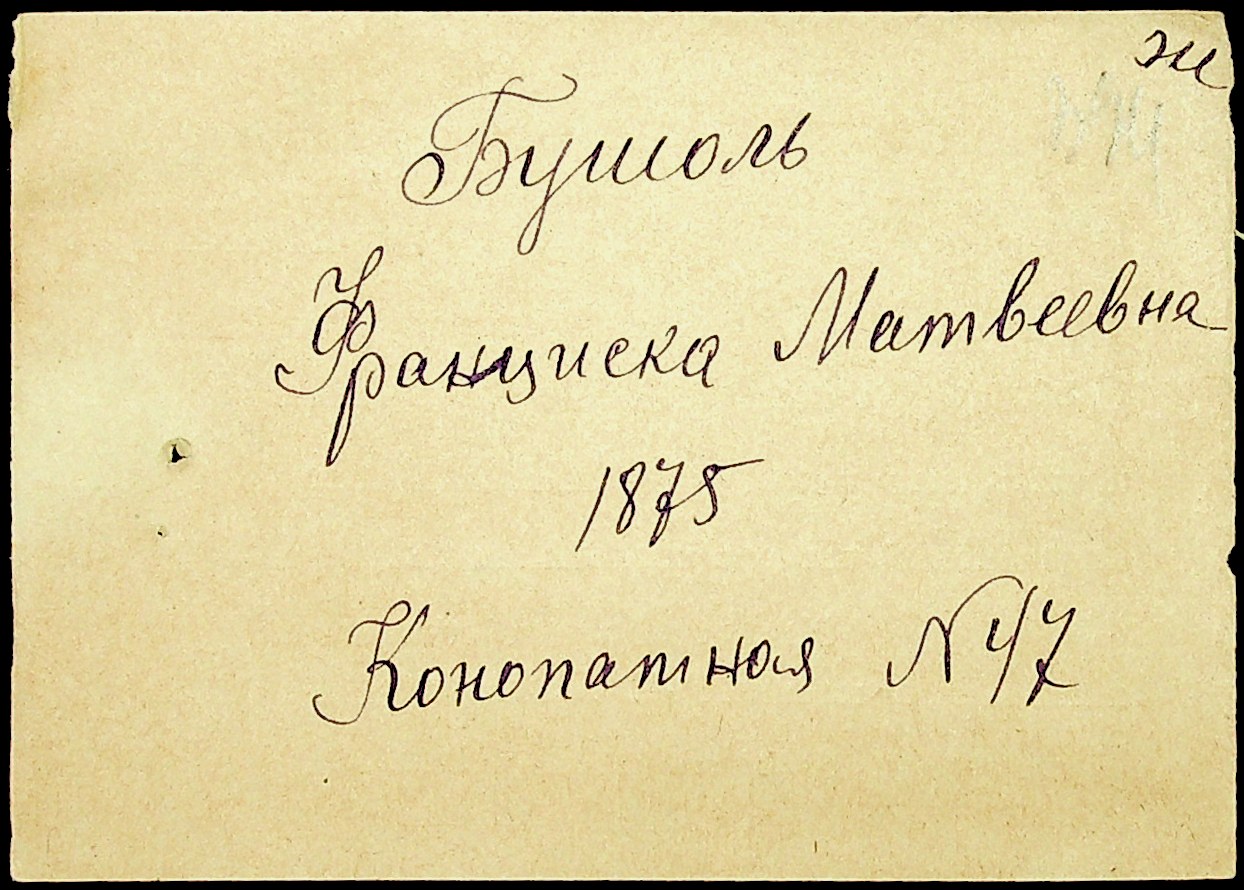 ж
Бушоль
Франциска Матвеевна
1875
Конопатная N 47